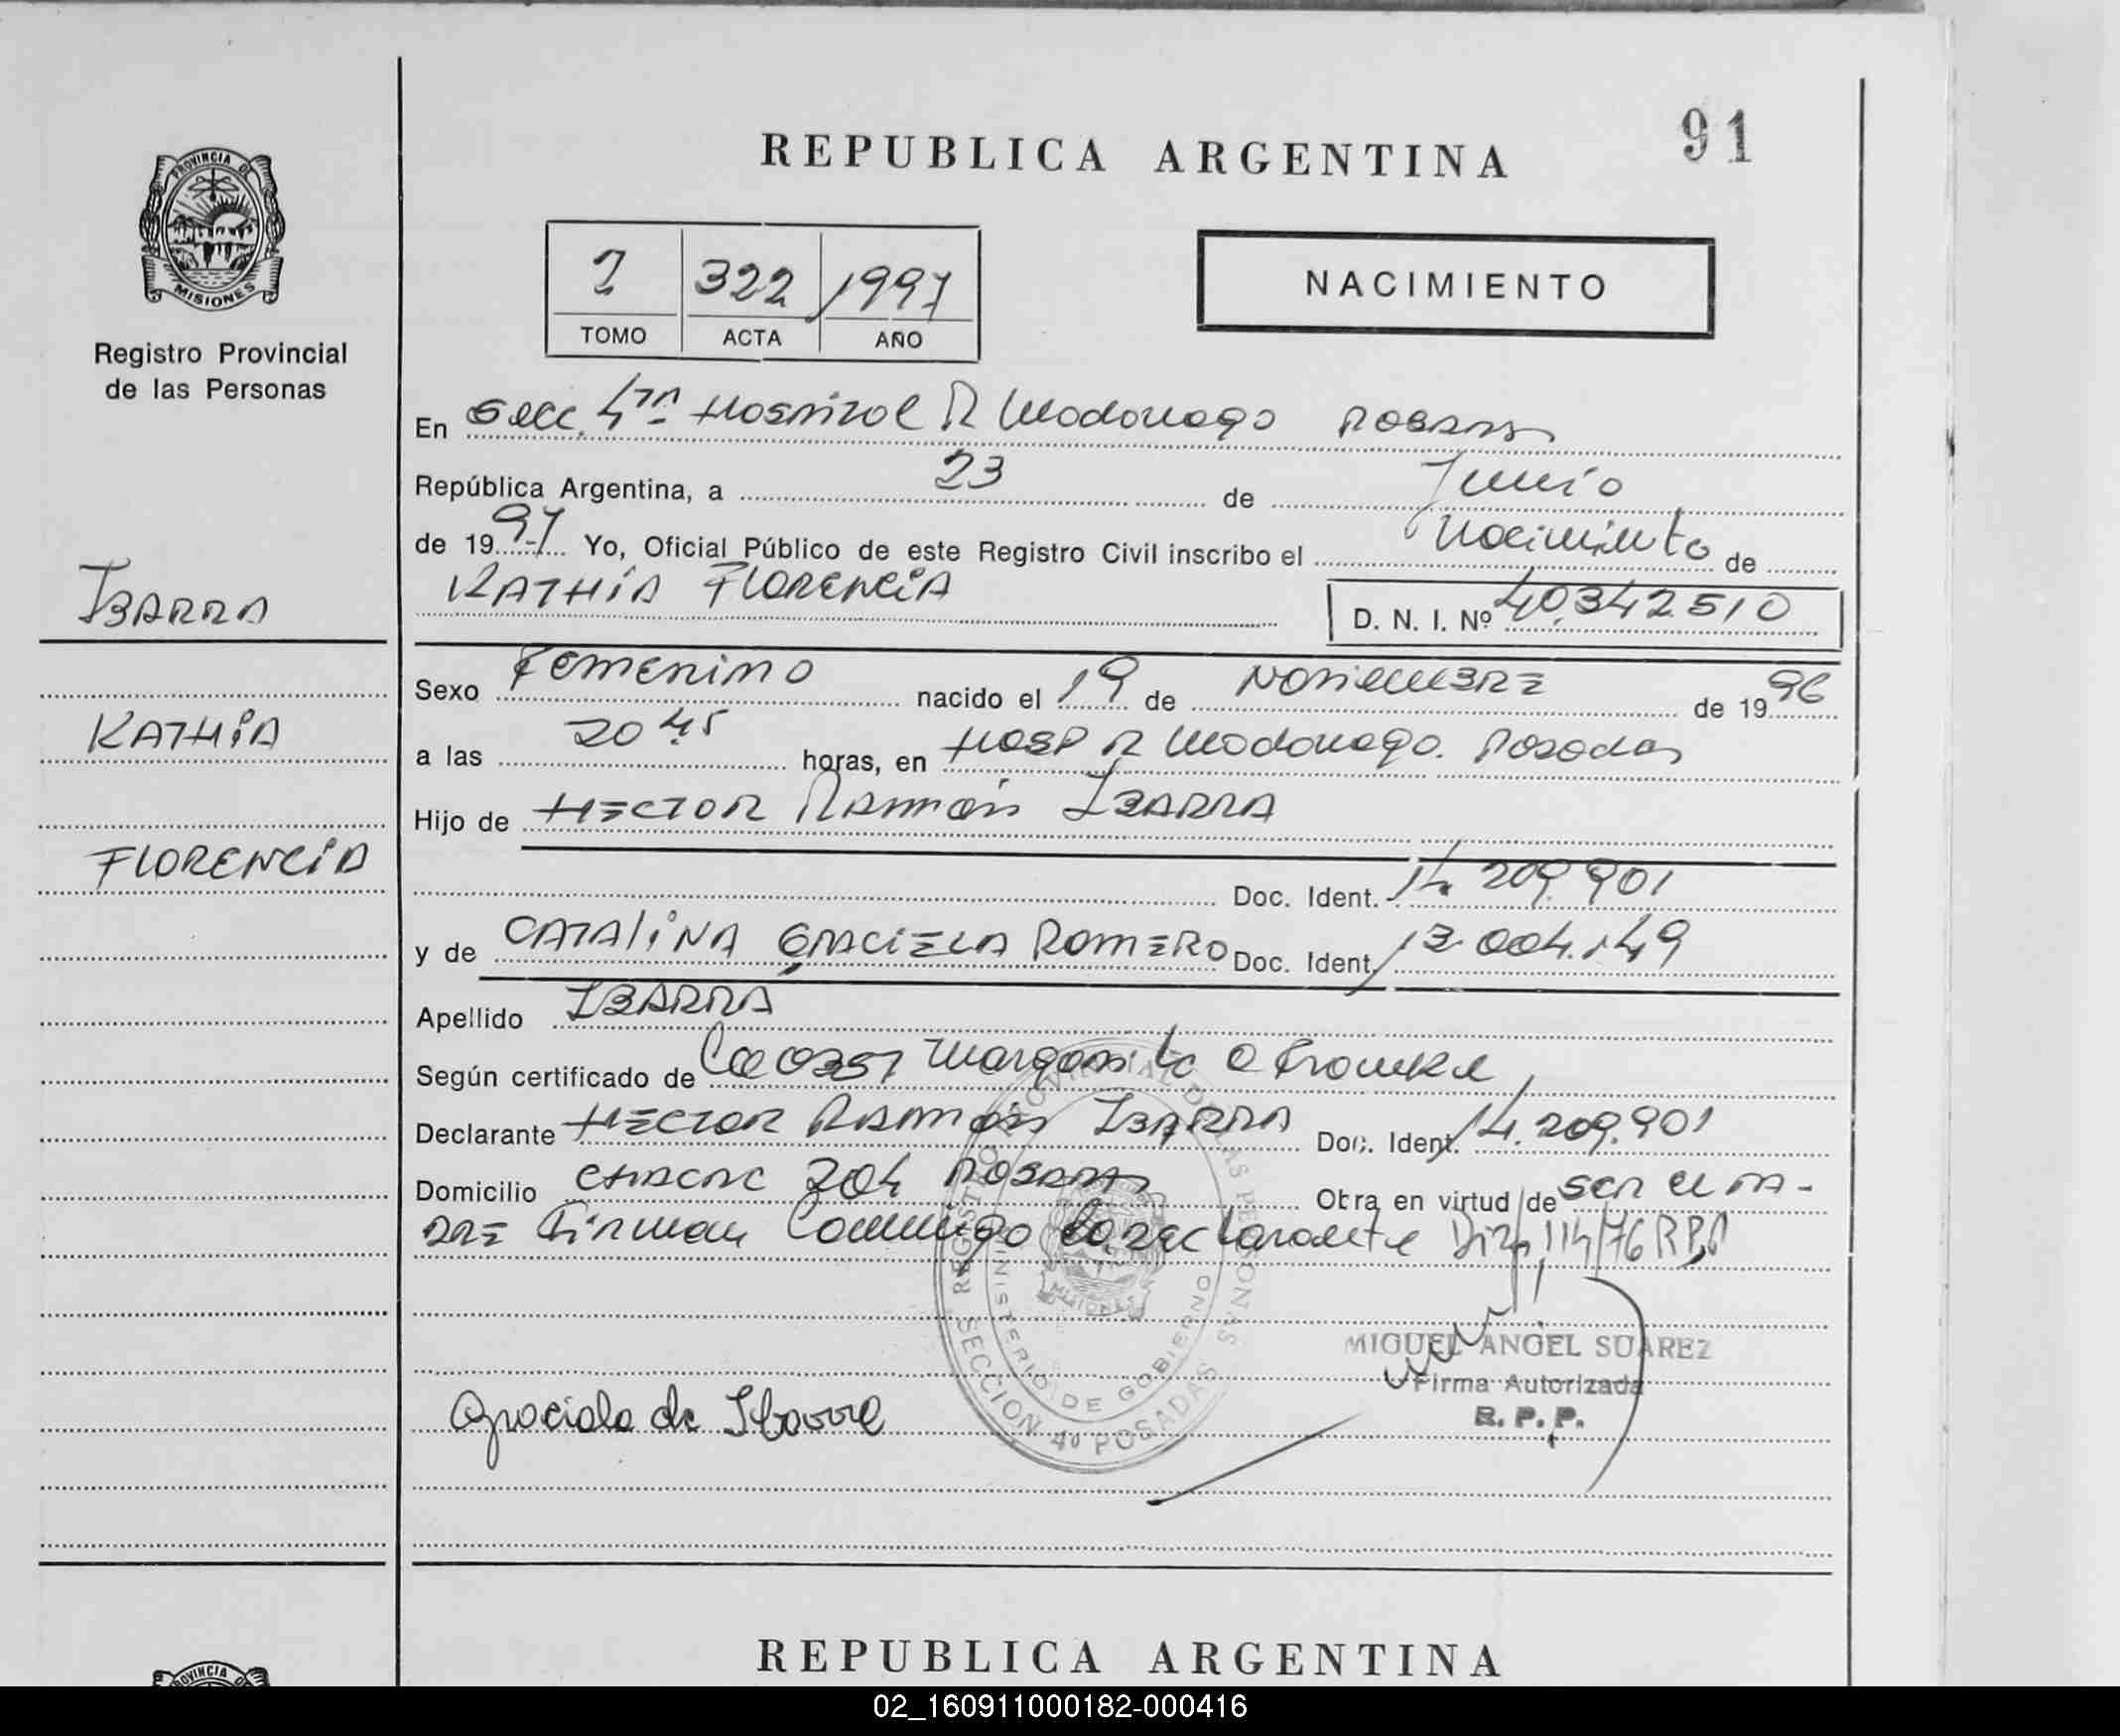 91
REPUBLICA ARGENTINA
PROVINCIA DE
MISIONES
Registro Provincial
de las Personas
322 1997
TOMO ACTA AÑO
NACIMIENTO
En Secc. 4ta Hospital R Madariaga Posadas
República Argentina, a 23 de Junio
de 1997 Yo, Oficial Público de este Registro Civil inscribo el Nacimiento de
KATHIA FLORENCIA
D. N. I. Nº 40.342510
IBARRA
KATHIA
FLORENCIA
Sexo Femenino nacido el 19 de NOVIEMBRE de 1996
a las 20 45 horas, en HOSP R Madariaga. Posadas
Hijo de HECTOR RAMON IBARRA
Doc. Ident. 14.209.901
y de CATALINA GRACIELA ROMERO Doc. Ident. 13.004.149
Apellido IBARRA
Según certificado de
Declarante HECTOR RAMON IBARRA Doc. Ident. 14.209.901
Domicilio 204 POSADAS Obra en virtud de ser el PA-
DRE Firman Conmigo la declarante 114/76 R.P.P.
REGISTRO PROVINCIAL DE LAS PERSONAS
MINISTERIO DE GOBIERNO
MISIONES
SECCION 4º POSADAS
MIGUEL ANGEL SUAREZ
Firma Autorizada
R. P. P.
Graciela de Ibarra
REPUBLICA ARGENTINA
PROVINCIA DE
02_160911000182-000416